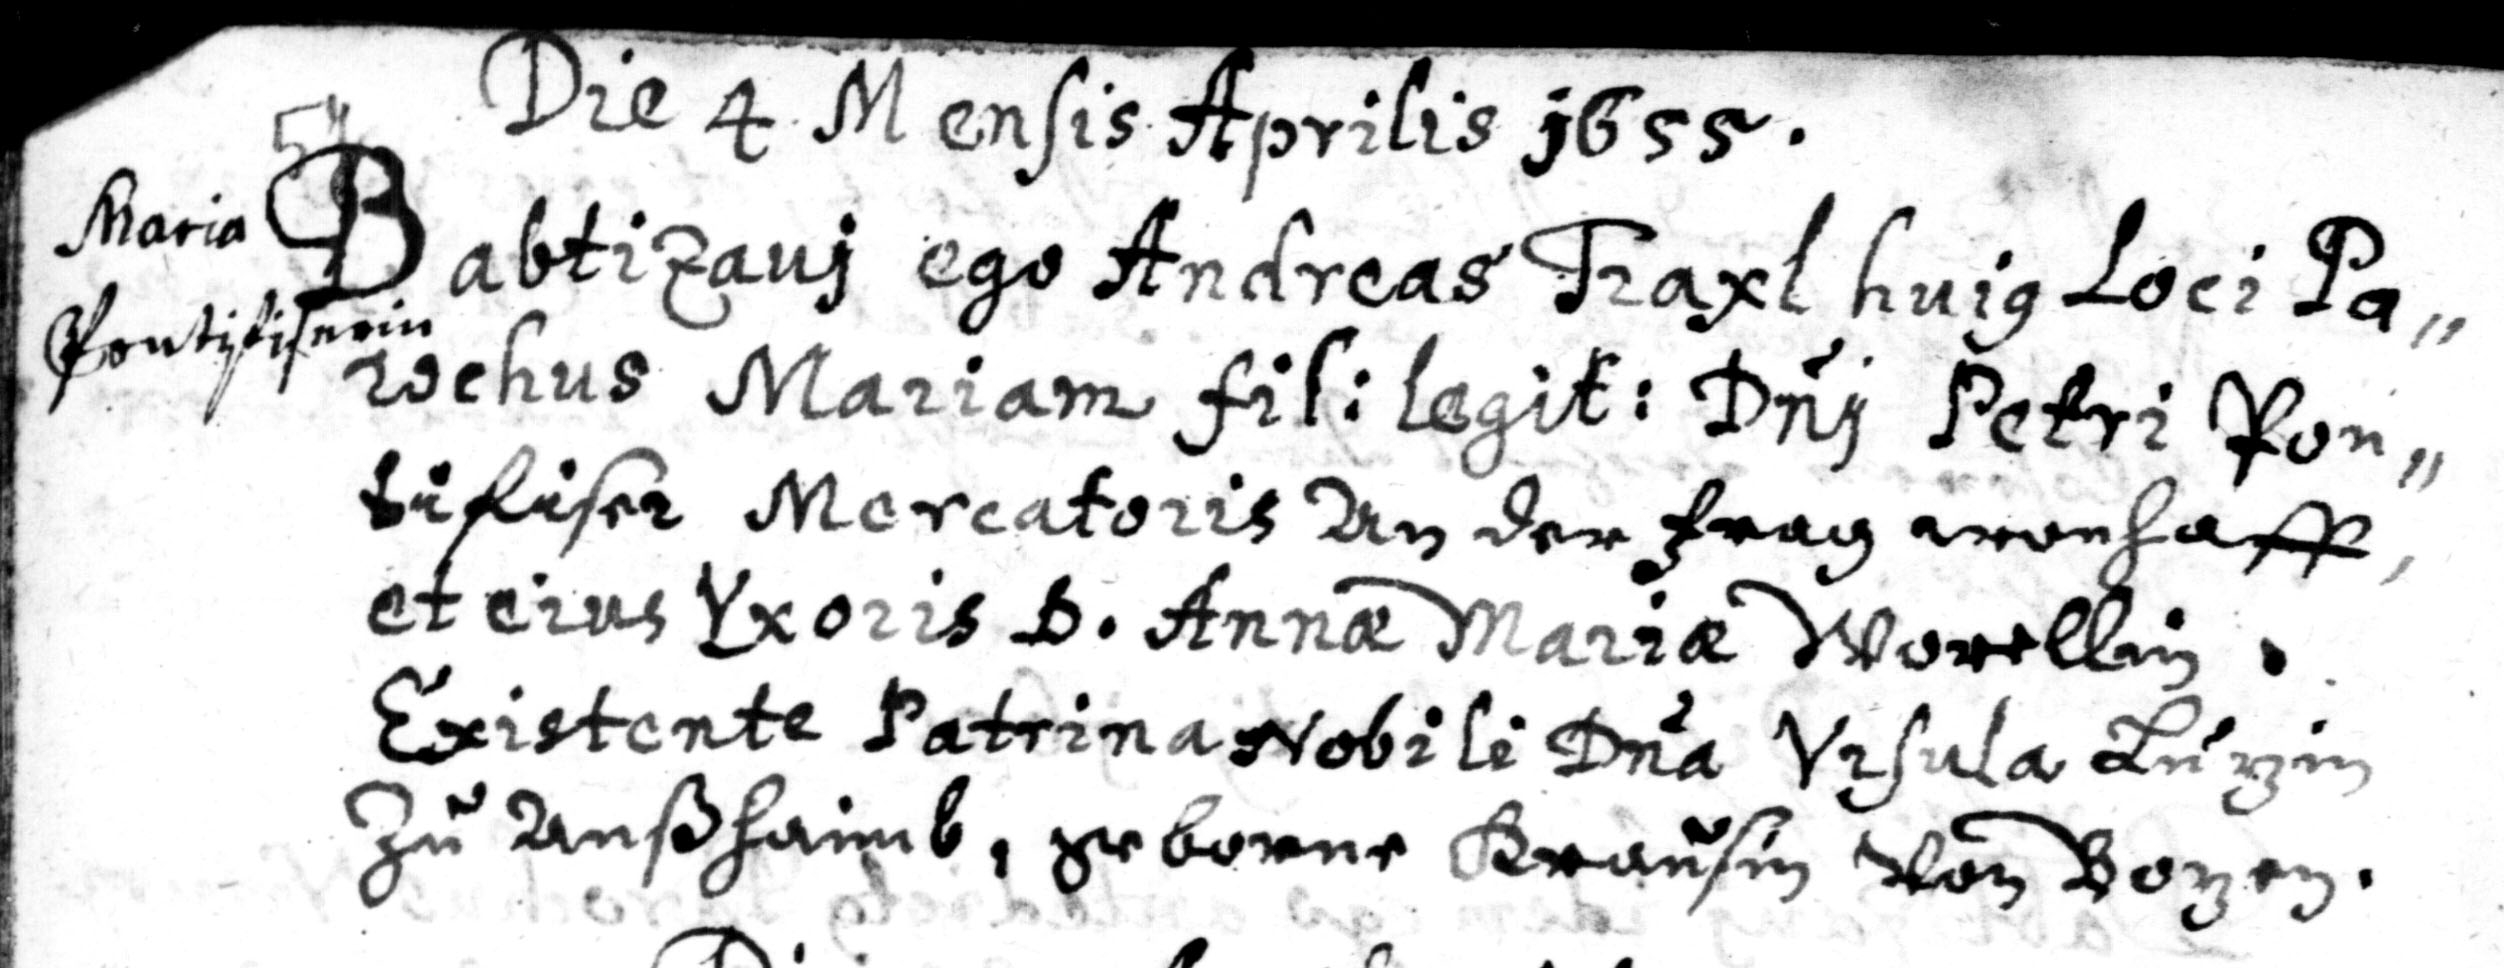 Die 4 Mensis Aprilis j655.
Maria
Pontifiserin
Babtizauj ego Andreas Traxl huig Loci Pa„
rochus Mariam fil: legit: Dnj Petri Pon„
tifiser Mercatoris An der
et eius Vxoris D. Annæ Mariæ Worellin.
Existente Patrina Nobili Dna Vrsula
Zu geborne Krausin Von Bozen.